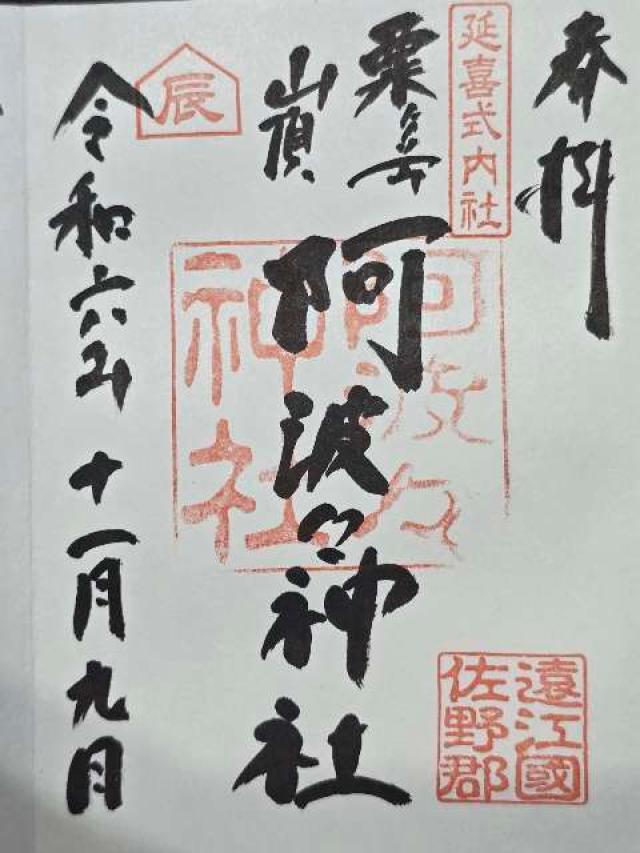 奉拝
延喜式内社
粟ヶ岳
山頂
阿波々神社
阿波々神社
遠江國佐野郡
辰
令和六年
十一月九日